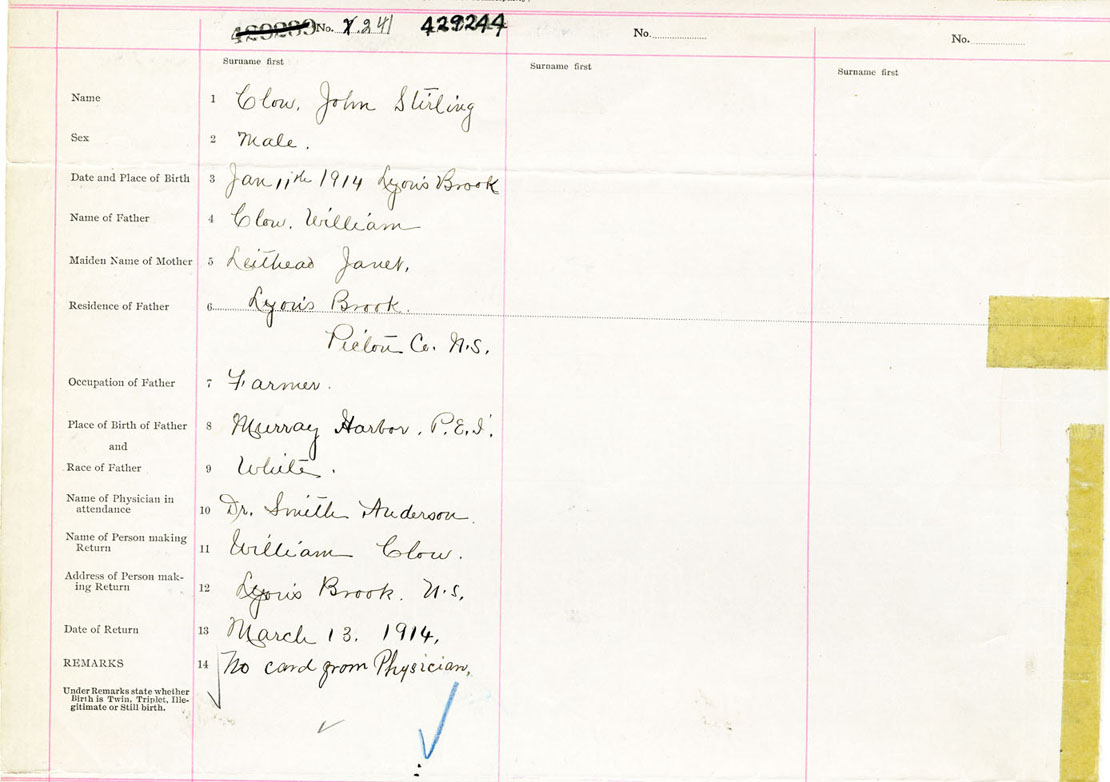 No. 241 429244 No. No.
Surname first Surname first Surname first
Name 1 Clow, John Stirling
Sex 2 Male.
Date and Place of Birth 3 Jan 11th 1914 Lyon's Brook
Name of Father 4 Clow, William
Maiden Name of Mother 5 Leithead Janet,
Residence of Father 6 Lyon's Brook.
Pictou Co. N.S.
Occupation of Father 7 Farmer.
Place of Birth of Father 8 Murray Harbor, P.E.I.
and
Race of Father 9 White.
Name of Physician in
attendance 10 Dr. Smith Anderson.
Name of Person making
Return 11 William Clow.
Address of Person mak-
ing Return 12 Lyon's Brook. N.S.
Date of Return 13 March 13. 1914,
REMARKS 14 No card from Physician,
Under Remarks state whether
Birth is Twin, Triplet, Ille-
gitimate or Still birth.